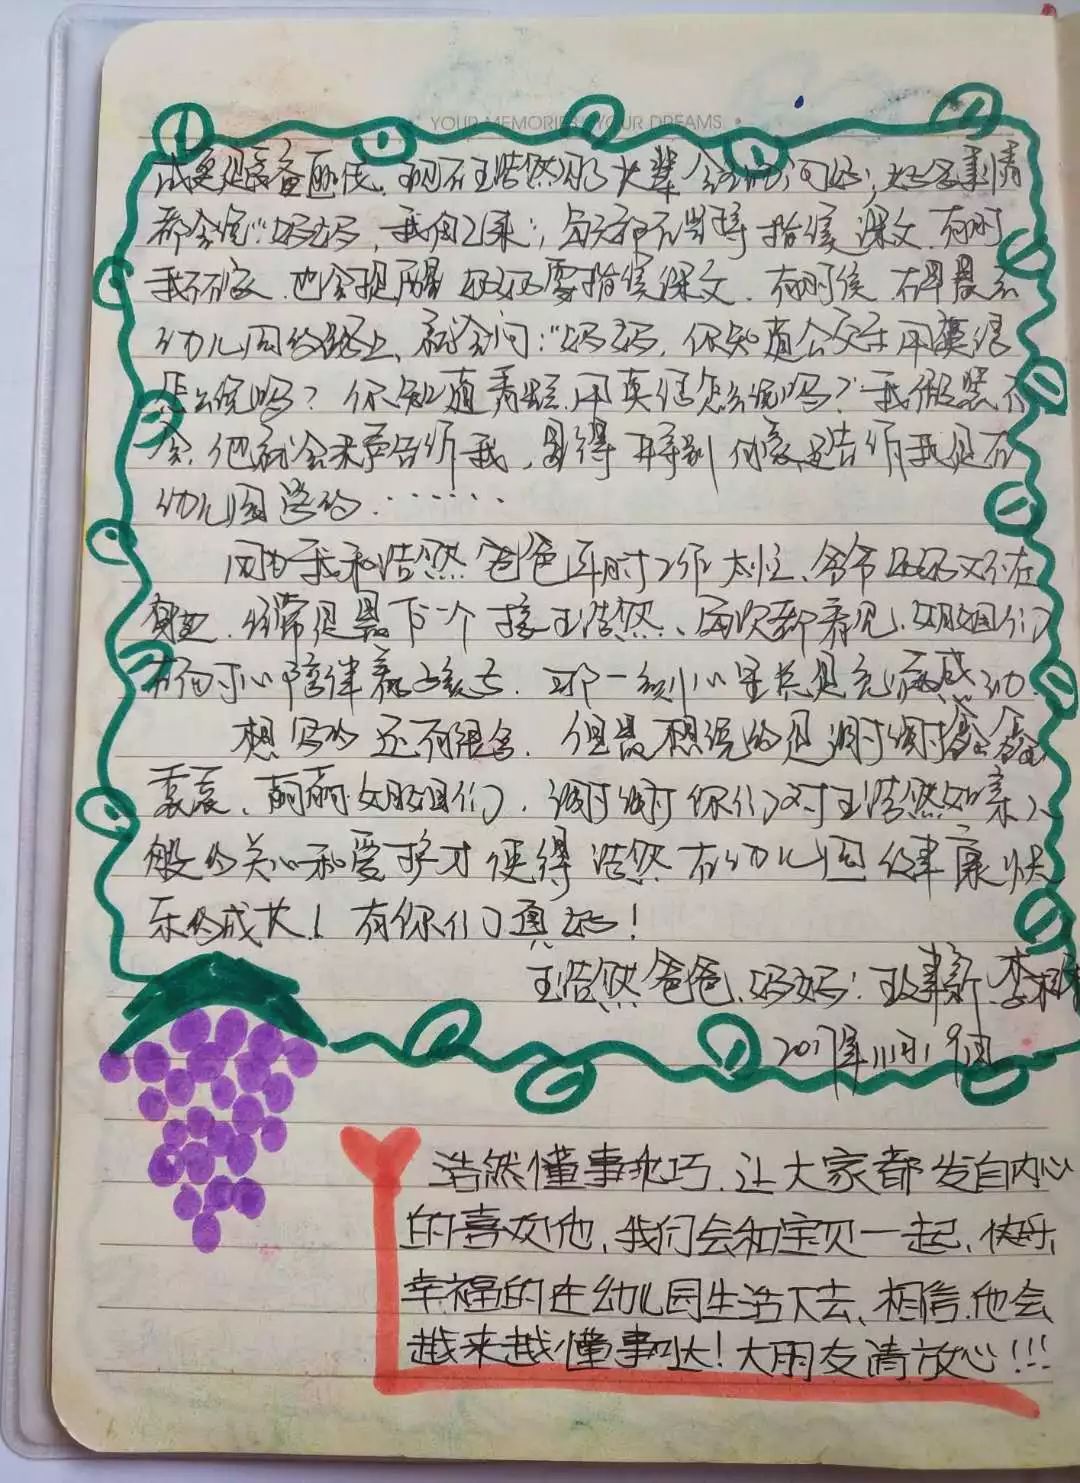 YOUR MEMORIES YOUR DREAMS
现在王浩然见了长辈会主动问好，好多事情
都会说："妈妈，我自己来"，每天都不忘 指读课文，有时
我不读，也会提醒妈妈要指读课文，有时候，在早晨去
幼儿园的路上，就会问："妈妈，你知道公交车用英语
怎么说吗？你知道香蕉用英语怎么说吗？"我假装不
会，他就会大声告诉我，显得特别自豪，还告诉我是在
幼儿园学的．．．．．．．
因为我和浩然爸爸平时工作太忙，爷爷奶奶又不在
身边，经常是最后一个接王浩然，每次都看见姐姐们
在耐心陪伴着孩子，那一刻心里总是充满感动．
想写的还有很多，但最想说的是谢谢鑫鑫
，丽丽姐姐们，谢谢你们对王浩然如亲人
般的关心和爱护才使得浩然在幼儿园健康快
乐的成长！有你们真好！
王浩然爸爸、妈妈：
2017年11月19日
浩然懂事乖巧，让大家都发自内心
的喜欢他，我们会和宝贝一起，快乐，
幸福的在幼儿园生活下去，相信，他会
越来越懂事哒！大朋友请放心!!!